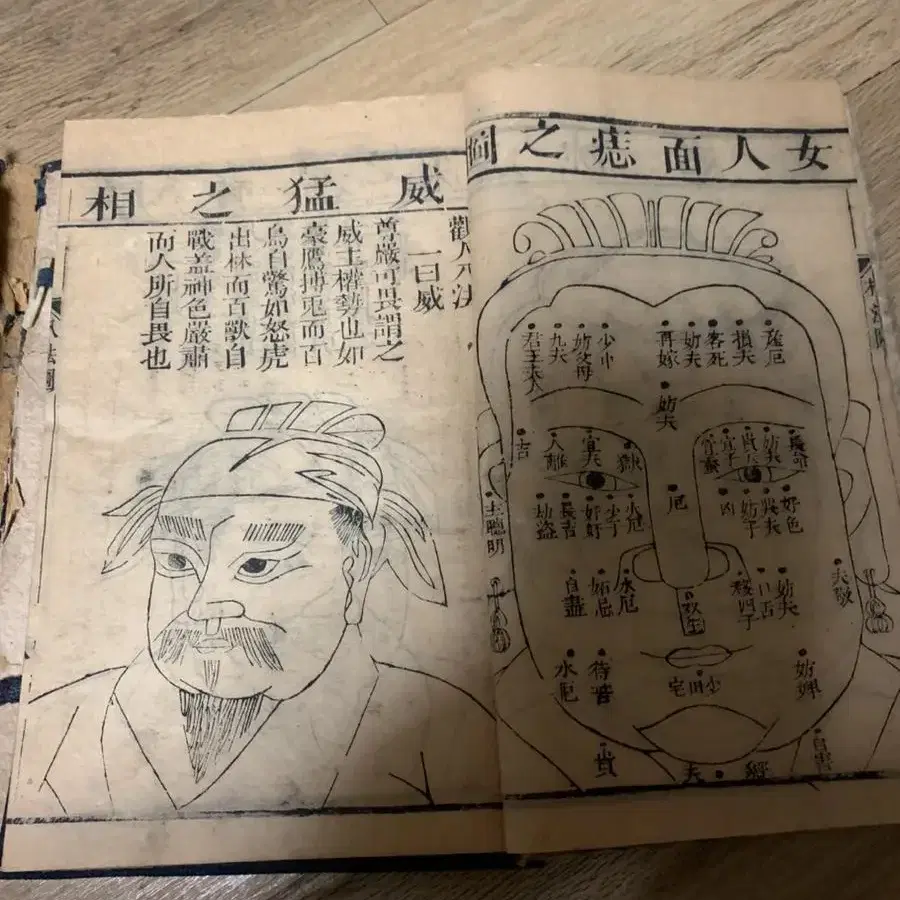 女人面痣之圖
産厄
損夫
客死
妨夫
再嫁
妨父母
九夫
君王夫人
妨夫
長命
妨夫
宜子
宜蚕
獄
宜夫
人離
吉
好色
妨子
凶
厄
水厄
少子
長吉
劫盗
主聰明
夫敬
妨夫
口舌
水厄
妬忌
自盡
妨婢
少田宅
水厄
貴
威猛之相
觀人八法
一曰威
尊嚴可畏謂之
威主權勢也如
豪鷹搏兎而百
鳥自驚如怒虎
出林而百獸自
戰蓋神色嚴肅
而人所自畏也